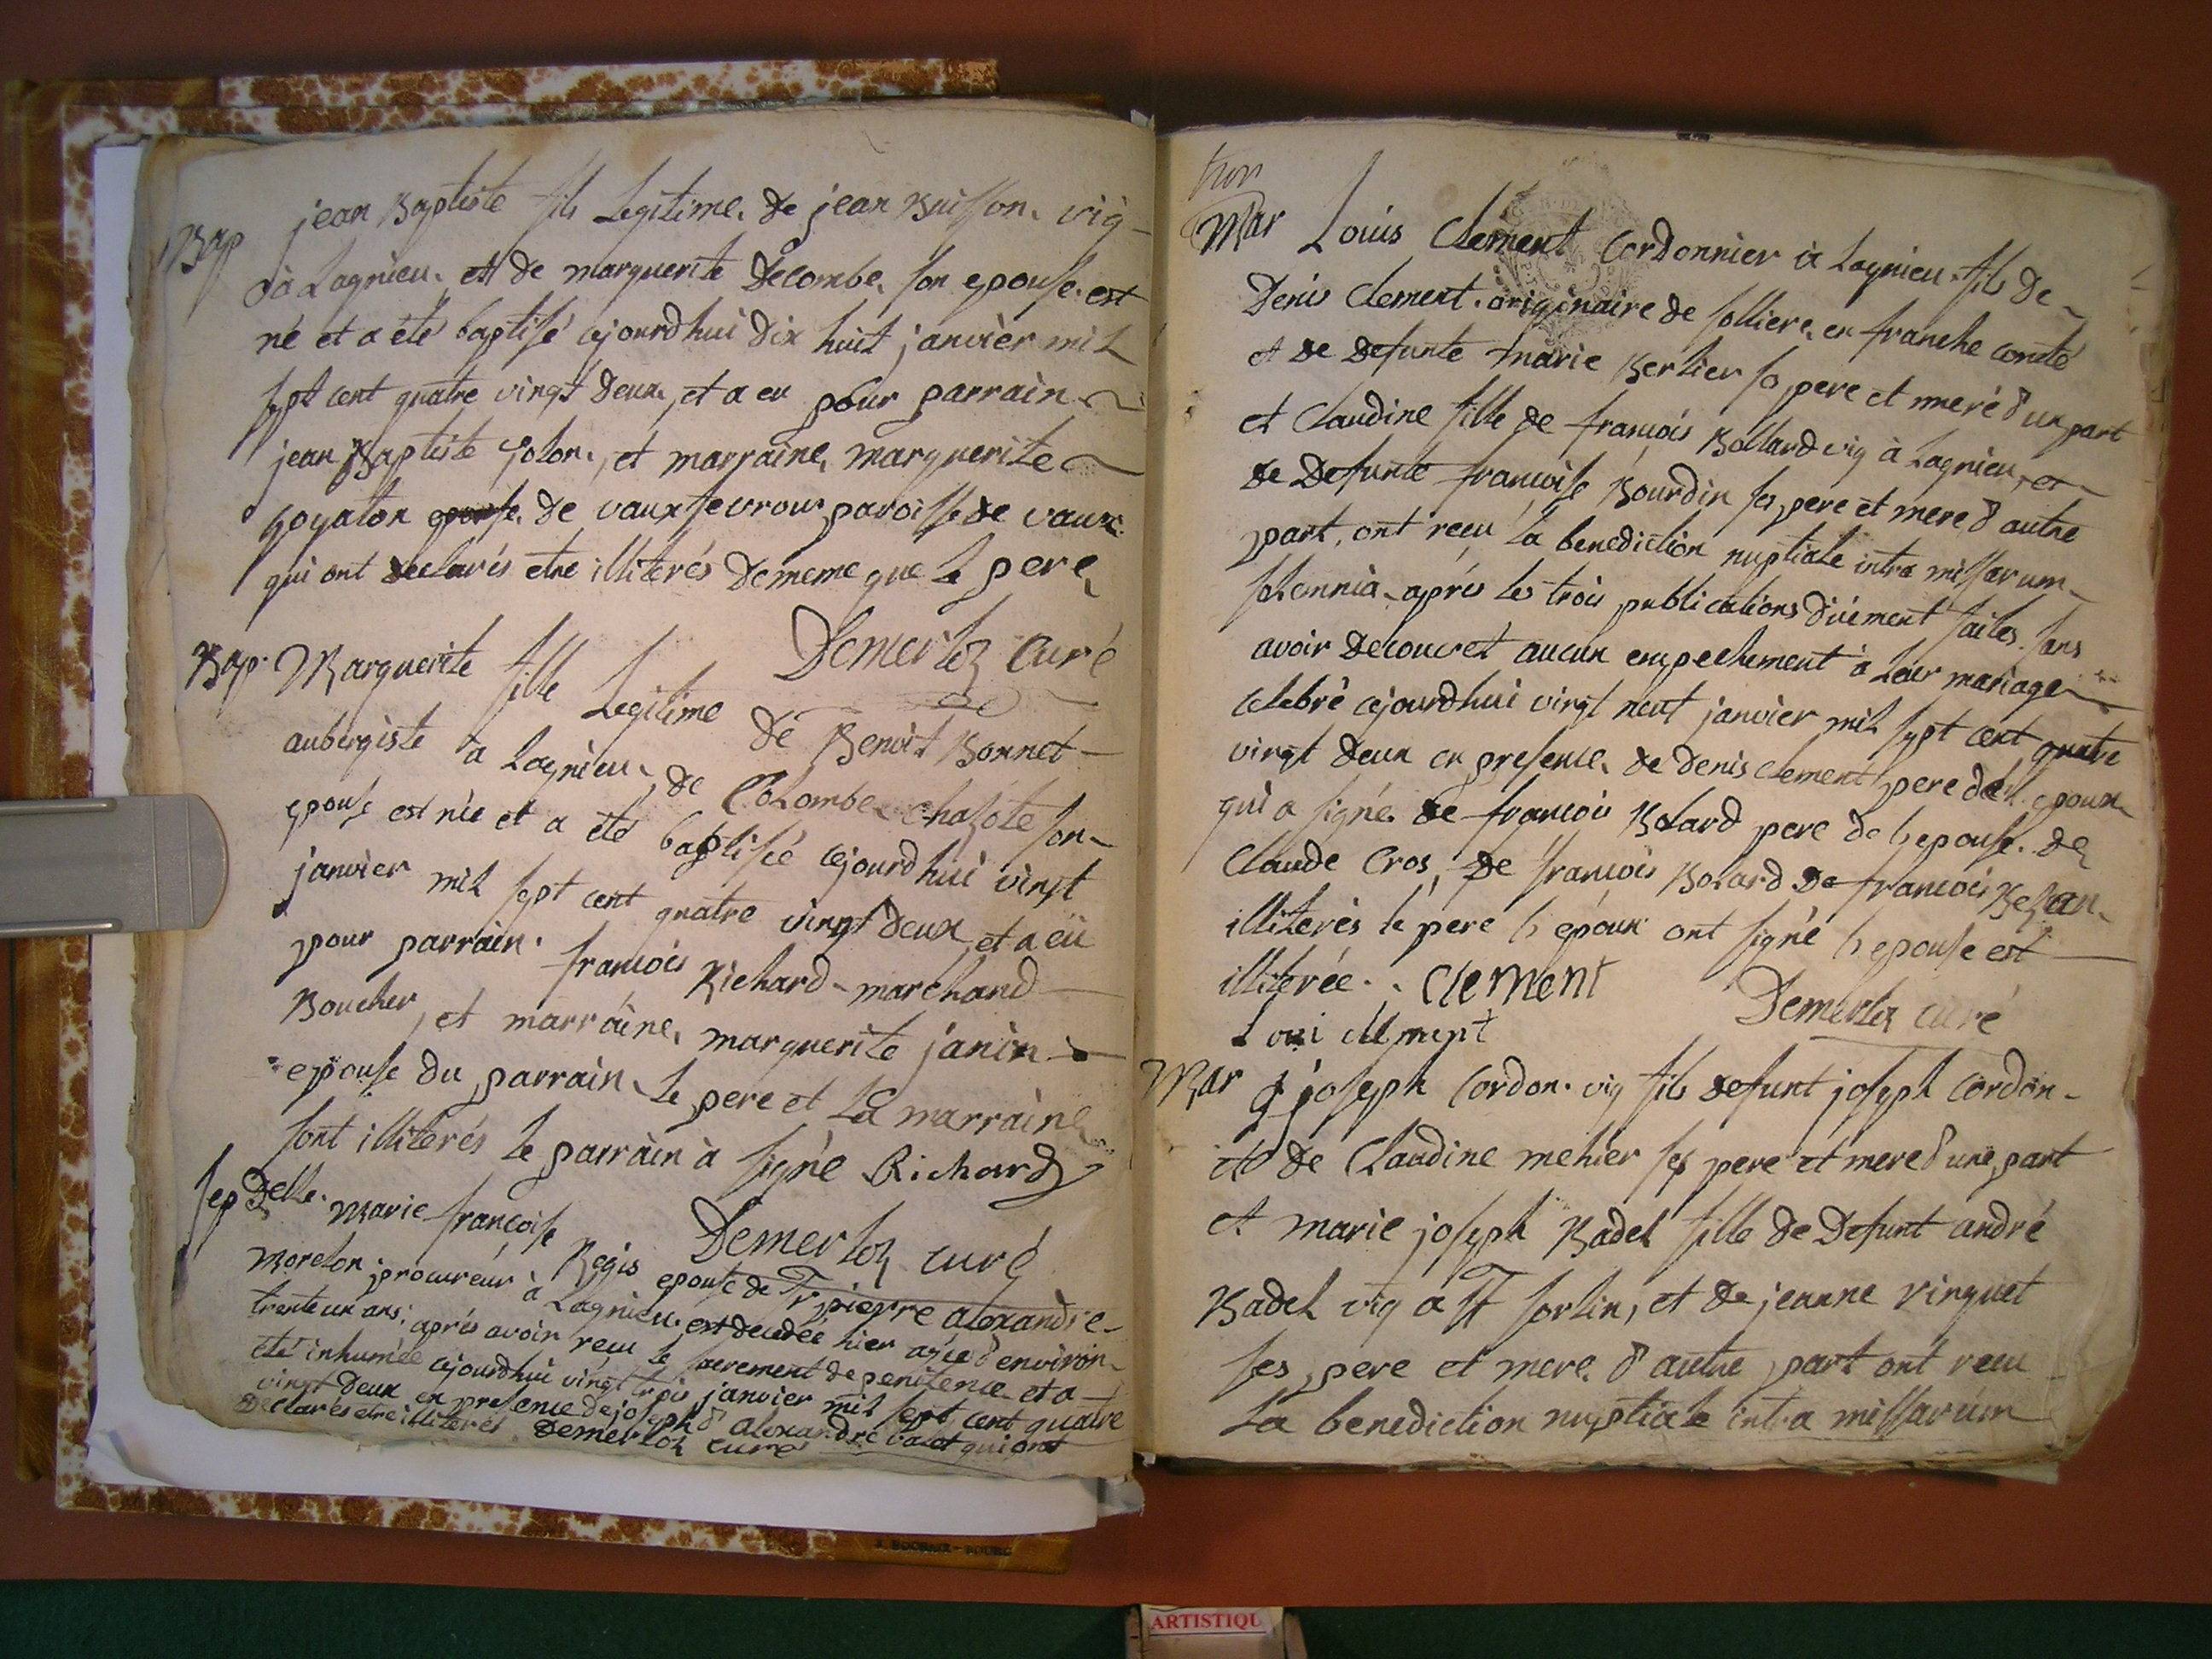 Bap jean Baptiste fils Legitime de jean Buisson vig
à Lagnieu et de marguerite Decombe son epouse est
né et a été baptisé cejourdhui dix huit janvier mil
sept cent quatre vingt deux, et a eu pour parrain
jean Baptiste Golon, et marraine marguerite
goyaton epouse de vauxsevrour paroisse de vaux
qui ont declarés etre illiterés de meme que le pere
Demerloz curé
Bap. Marguerite fille Legitime de Benoit Bonnet
aubergiste a Lagnieu de Colombe chazote son
epouse est née et a été baptisée cejourdhui vingt
janvier mil sept cent quatre vingt deux, et a eü
pour parrain. francois Richard marchand
Boucher, et marraine marguerite janin
epouse du parrain. le pere et La marraine
sont illiterés le parrain à signé Richard
Demerloz curé
Sep Delle. Marie francoise Regis epouse de Sr pierre alexandre
Morelon procureur à Lagnieu est decedée hier agée d'environ
trente un ans, après avoir recu le sacrement de penitence et a
été inhumée cejourdhui vingt trois janvier mil sept cent quatre
vingt deux en presence de joseph d'alexandre valet qui ont
Declarés etre illiterés. Demerloz curé
Mar Louis Clement Cordonnier à Lagnieu fils de
Denis Clement. originaire de solliere en franche comté
et de defunte marie Berlier ses pere et mere d'un part
et Claudine fille de francois Bollard vig à Lagnieu, et
de Defunte francoise Bourdin ses pere et mere d'autre
part, ont recu la benediction nuptiale intra missarum
solennia après les trois publications düement faites sans
avoir decouvert aucun empechement à leur mariage
celebré cejourdhui vingt neuf janvier mil sept cent quatre
vingt deux en presence de denis clement pere de l'epoux
qui a signé de francois Bolard pere de l'epouse. de
Claude Cros, de francois Bolard de francois Bezan
illiterés le pere l'epoux ont signé l'epouse est
illiterée. Clement
Demerloz curé
Loui clement
Mar joseph Cordon. vig fils defunt joseph Cordon
et de Claudine mehier ses pere et mere d'une part
et marie joseph Badel fille de Defunt andré
Badel vig a St sorlin, et de jeanne vinguet
ses pere et mere d'autre part ont recu
La benediction nuptiale intra missarum
ARTISTIQU